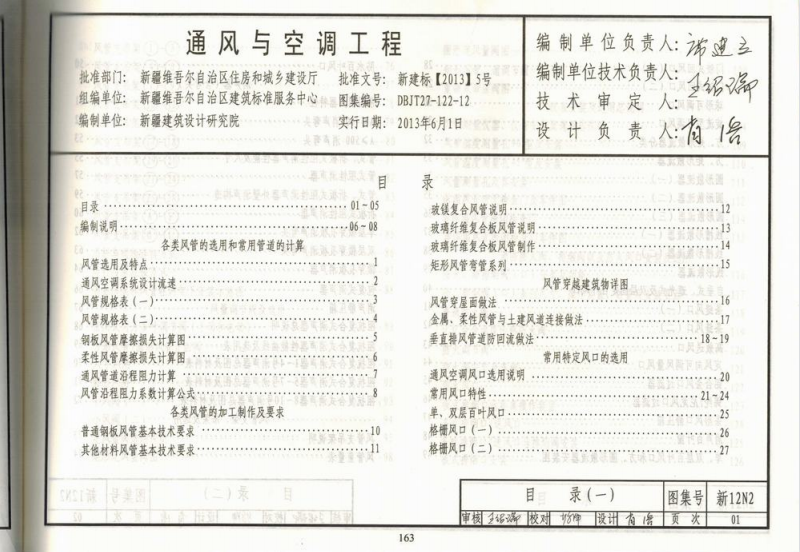 通风与空调工程
批准部门： 新疆维吾尔自治区住房和城乡建设厅 批准文号： 新建标【2013】5号
组编单位： 新疆维吾尔自治区建筑标准服务中心 图集编号： DBJT27-122-12
编制单位： 新疆建筑设计研究院 实行日期： 2013年6月1日
编制单位负责人：
编制单位技术负责人：
技术审定人：
设计负责人：
目 录
目录 01-05
编制说明 06-08
各类风管的选用和常用管道的计算
风管选用及特点 1
通风空调系统设计流速 2
风管规格表（一） 3
风管规格表（二） 4
钢板风管摩擦损失计算图 5
柔性风管摩擦损失计算图 6
通风管道沿程阻力计算 7
风管沿程阻力系数计算公式 8
各类风管的加工制作及要求
普通钢板风管基本技术要求 10
其他材料风管基本技术要求 11
玻镁复合风管说明 12
玻璃纤维复合板风管说明 13
玻璃纤维复合板风管制作 14
矩形风管弯管系列 15
风管穿越建筑物详图
风管穿屋面做法 16
金属、柔性风管与土建风道连接做法 17
垂直排风管道防回流做法 18-19
常用特定风口的选用
通风空调风口选用说明 20
常用风口特性 21-24
单、双层百叶风口 25
格栅风口（一） 26
格栅风口（二） 27
目 录（一） 图集号 新12N2
审核 校对 设计 页次 01
163